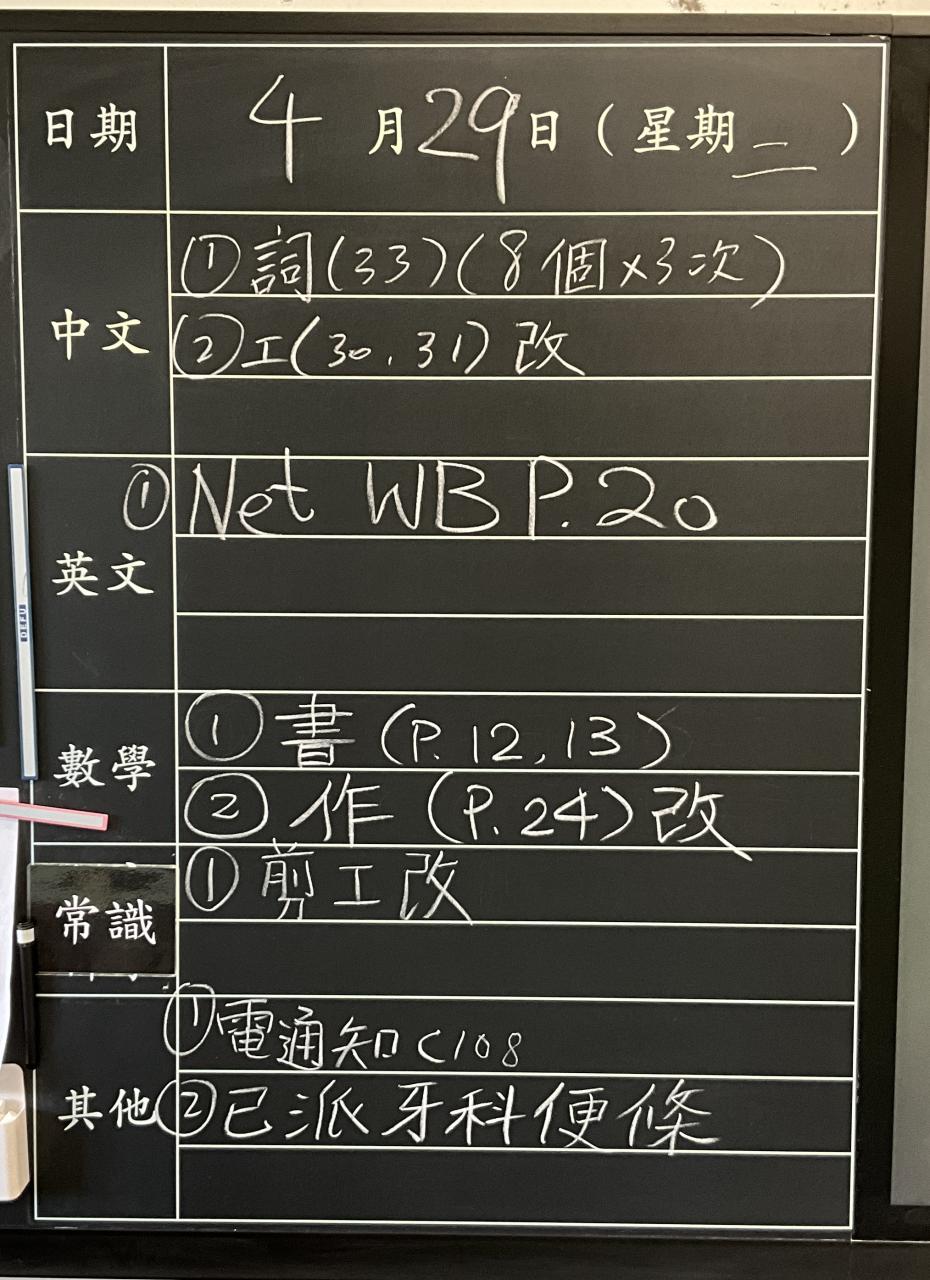 日期 4月29日(星期二)
中文 ①詞(33)(8個×3次)
②工(30,31)改
英文 ①Net WB P.20
數學 ①書(P.12,13)
②作(P.24)改
常識 ①剪工改
其他 ①電通知C108
②已派牙科便條
DEFU